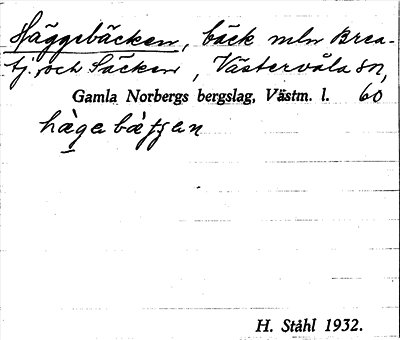 Häggebäcken, bäck mln Brea-
tj. och Säcken, Västervåla sn,
Gamla Norbergs bergslag, Västm. l. 60
hàgabätjen
H. Ståhl 1932.